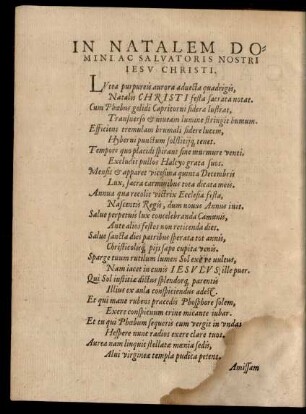 IN NATALEM DO-
MINI AC SALVATORIS NOSTRI
IESV CHRISTI.
LVtea purpureis aurora advecta quadrigis,
Natalis CHRISTI festa sacrata notat.
Cum Phœbus gelidi Capricorni sidera lustrat,
Transverso & mutam lumine stringit humum.
Efficiens tremulam brumali sidere lucem,
Hyberni punctum solstitijq; tenet.
Tempore quo placidi spirant sine murmure venti.
Excludit pullos Halcyo grata suos.
Mensis & apparet vicesima quinta Decembris
Lux, sacra carminibus tota dicata meis.
Annua qua recolit victrix Ecclesia festa,
Nascentis Regis, dum novus Annus init.
Salve perpetuis lux concelebranda Camœnis,
Ante alias festes non reticenda dies.
Salve sancta dies patribus sperata tot annis,
Christicolisq; pijs sapo cupita venis.
Sparge tuum rutilum lumen Sol exere vultus,
Nam jacet in cunis IESULUS; ille puer.
Qui Sol iustitiæ dictus splendorq; parentis
Illius ex aula conspiciendus adest.
Et qui mane rubens præcedis Phosphore solem,
Exere conspicuum crine micante iubar.
Et tu qui Phœbum sequeris cum vergit in undas
Hespere nunc radios exere clare tuos.
Aurea nam linquit stellatæ mœnia sedis,
Alvi virgineæ templa pudica petens.
Amissam